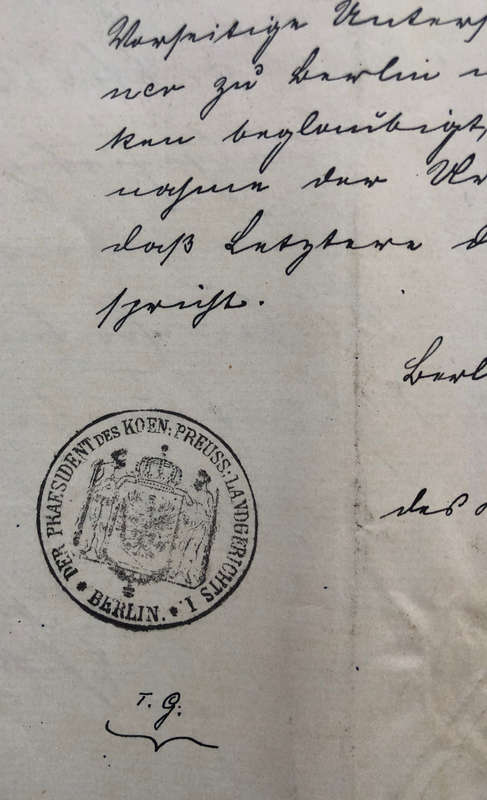 Vorseitige Unters
ner zu Berlin
ken beglaubigt,
nahme der Ur
daß Letztere d
spricht.
Berl
des
DER PRAESIDENT DES KOEN: PREUSS: LANDGERICHTS I.
* BERLIN. *
T. G: